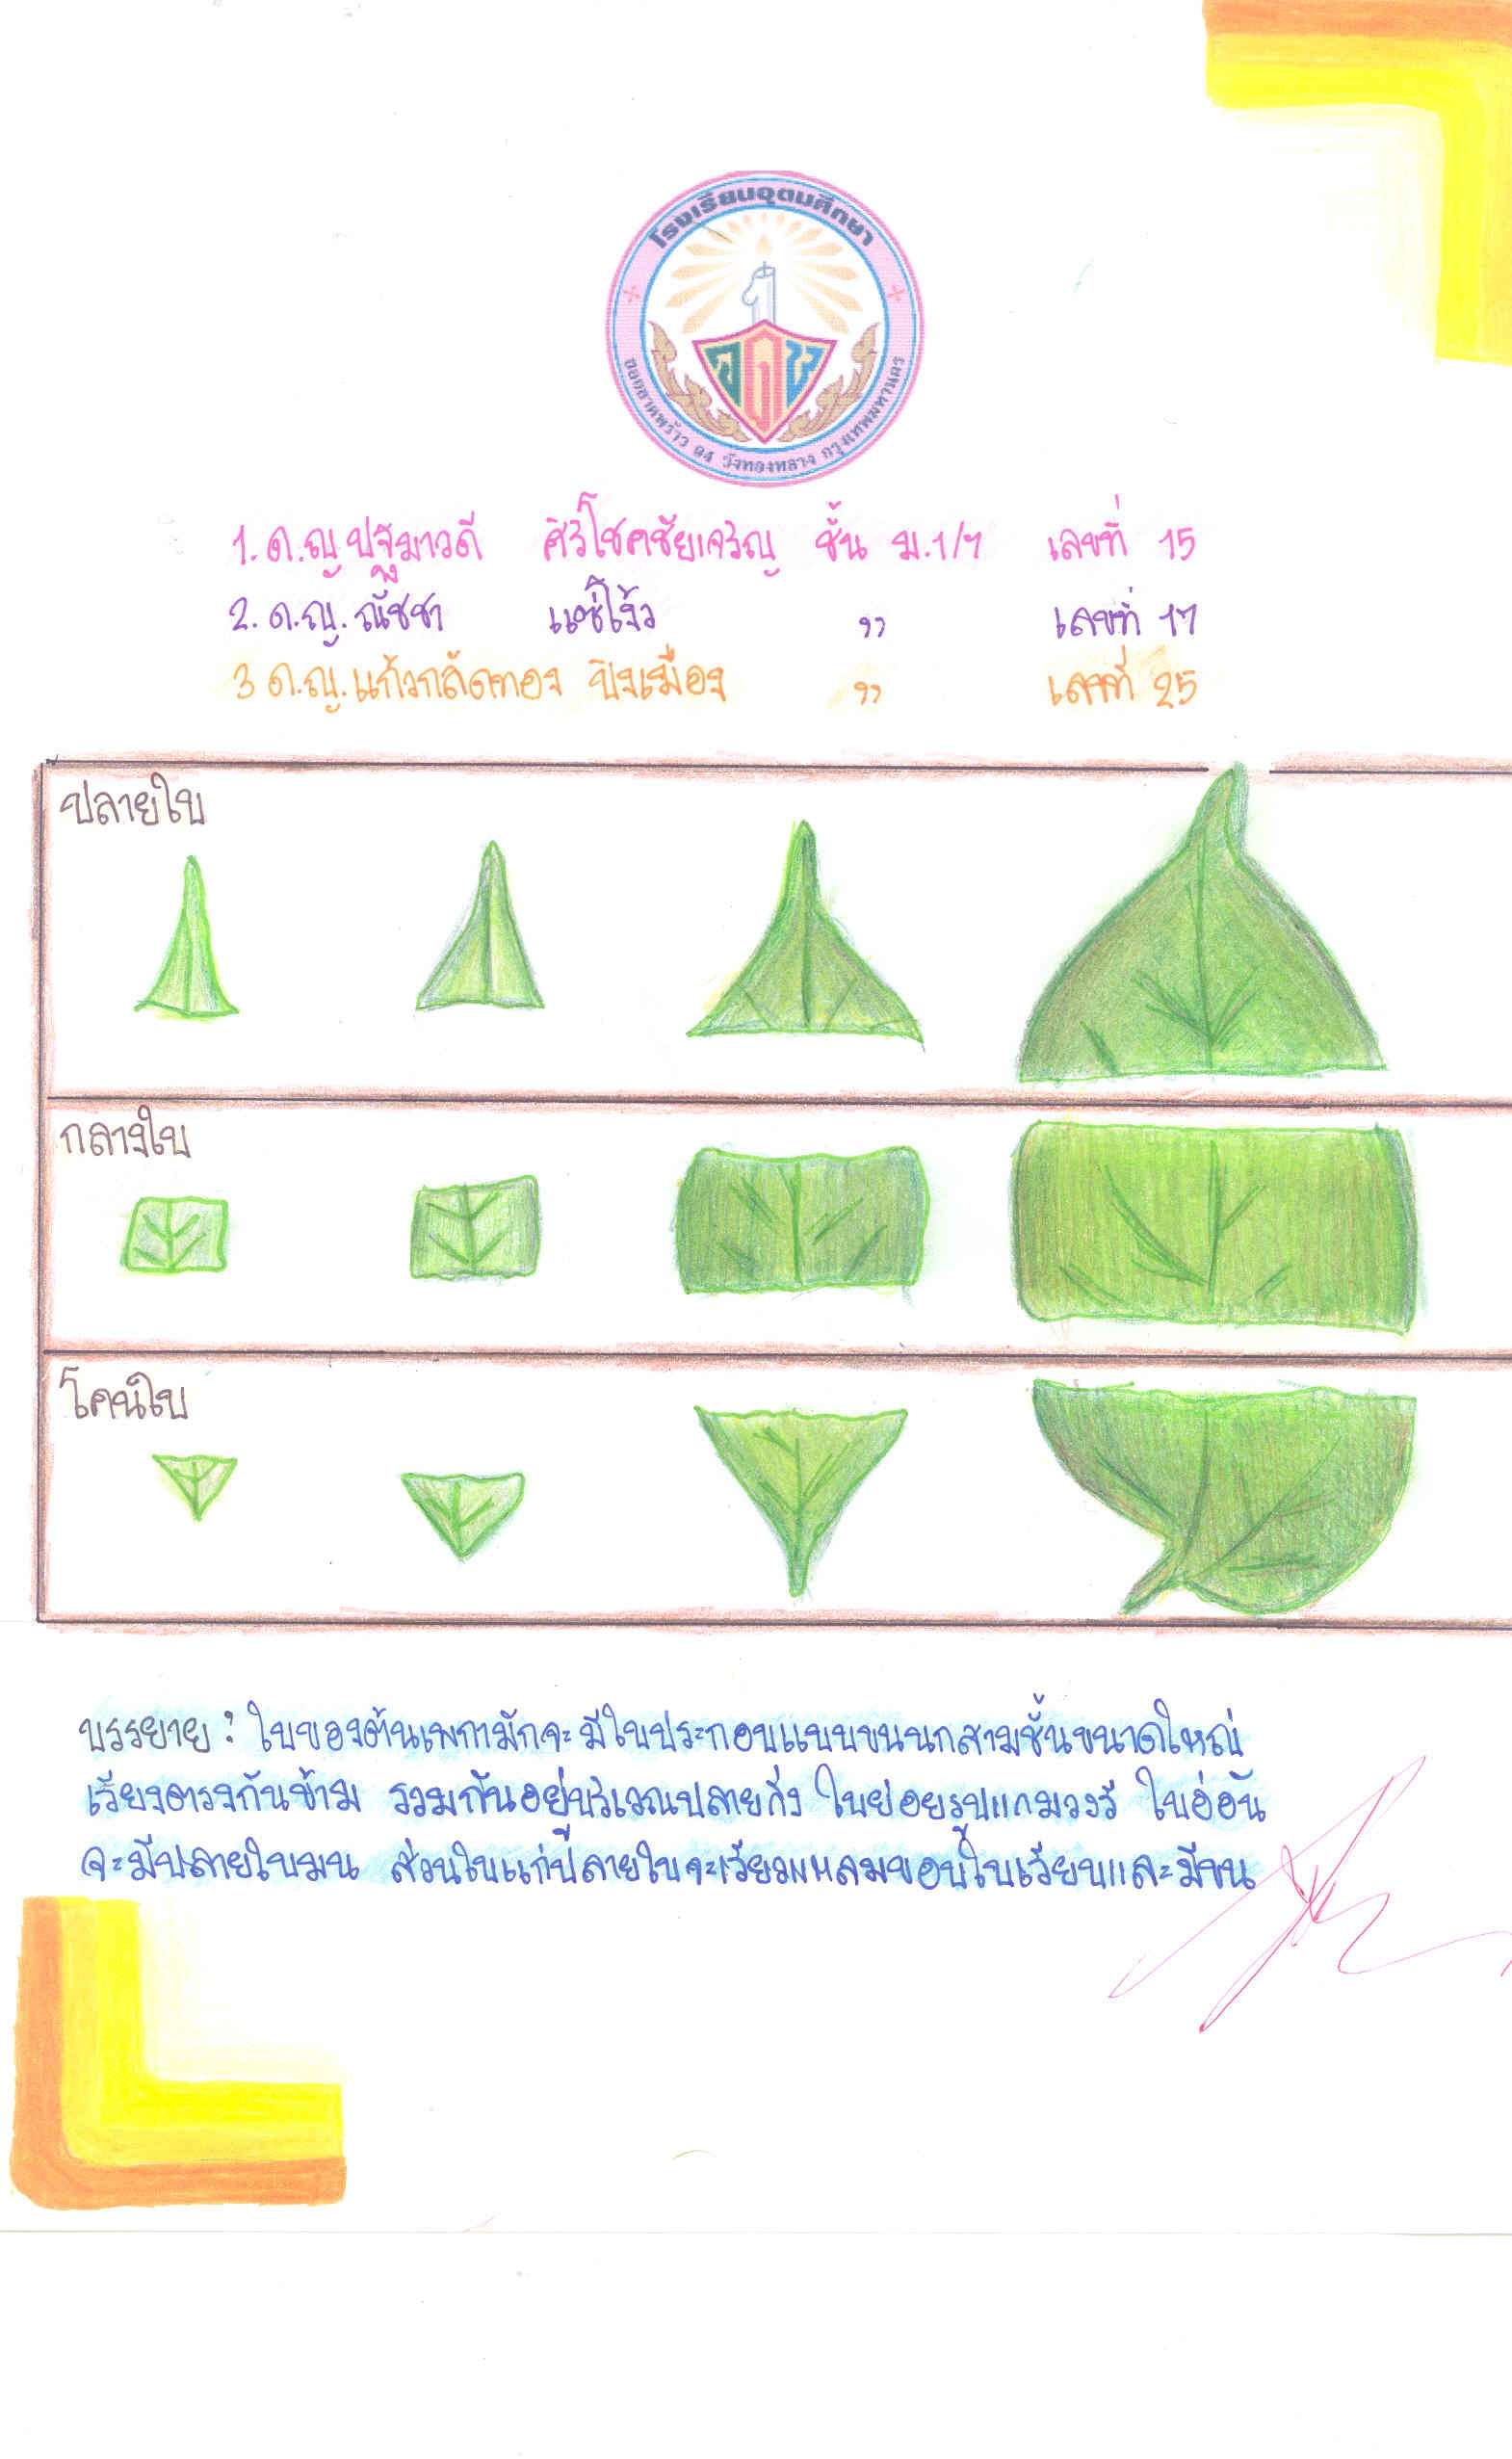 โรงเรียนอุดมศึกษา
ซอยลาดพร้าว ๙๔ วังทองหลาง กรุงเทพมหานคร
1. ด.ญ.ปฐมาวดี ศิริโชคชัยเจริญ ชั้น ม.1/7 เลขที่ 15
2. ด.ญ. ณัชชา แซ่โง้ว " เลขที่ 17
3 ด.ญ. แก้วกลัดทอง ปิงเมือง " เลขที่ 25
ปลายใบ
กลางใบ
โคนใบ
บรรยาย : ใบของต้นเพกามักจะมีใบประกอบแบบขนนกสามชั้นขนาดใหญ่
เรียงตรงกันข้าม รวมกันอยู่บริเวณปลายกิ่ง ใบย่อยรูปแกมวงรี ใบอ่อน
จะมีปลายใบมน ส่วนใบแก่ปลายใบจะเรียวแหลมขอบใบเรียบและมีขน